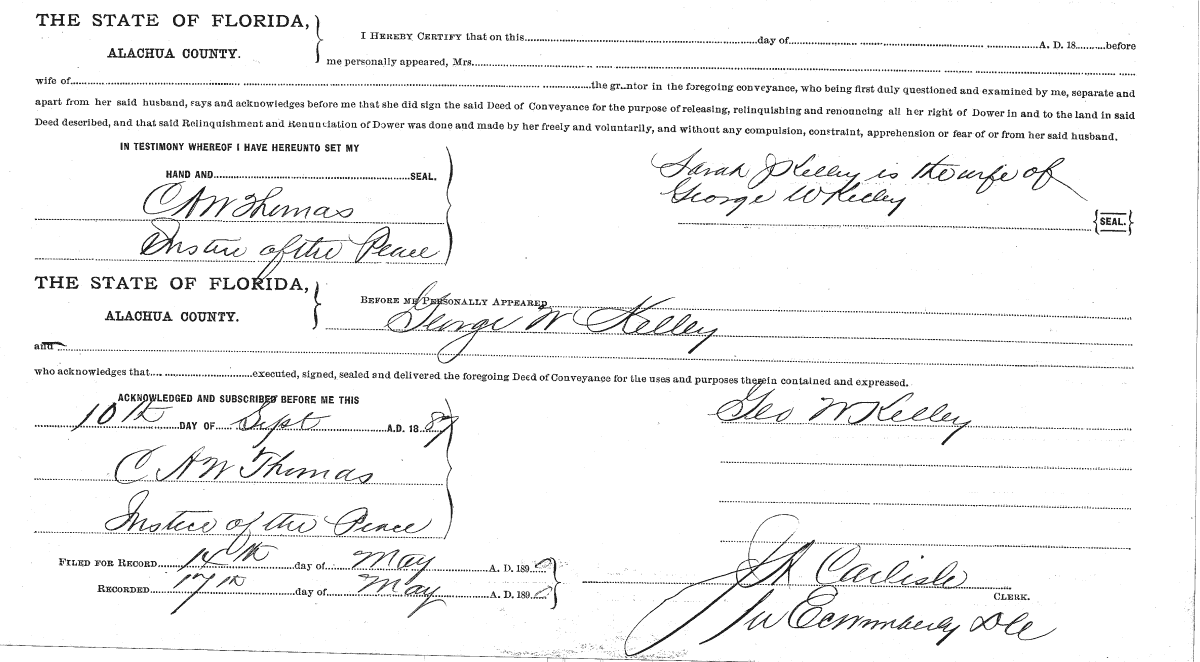 THE STATE OF FLORIDA,
ALACHUA COUNTY.
I HEREBY CERTIFY that on this day of A. D. 18 before
me personally appeared, Mrs.
wife of the gr ntor in the foregoing conveyance, who being first duly questioned and examined by me, separate and
apart from her said husband, says and acknowledges before me that she did sign the said Deed of Conveyance for the purpose of releasing, relinquishing and renouncing all her right of Dower in and to the land in said
Deed described, and that said Relinquishment and Renunciation of Dower was done and made by her freely and voluntarily, and without any compulsion, constraint, apprehension or fear of or from her said husband.
IN TESTIMONY WHEREOF I HAVE HEREUNTO SET MY
HAND AND SEAL.
C A W Thomas
Justice of the Peace
Sarah J Kelley is the wife of
George W Kelley
SEAL.
THE STATE OF FLORIDA,
ALACHUA COUNTY.
BEFORE ME PERSONALLY APPEARED
George W Kelley
and
who acknowledges that executed, signed, sealed and delivered the foregoing Deed of Conveyance for the uses and purposes therein contained and expressed.
ACKNOWLEDGED AND SUBSCRIBED BEFORE ME THIS
10th DAY OF Sept A.D. 1887
C A W Thomas
Justice of the Peace
Geo W Kelley
FILED FOR RECORD 14th day of May A. D. 189
RECORDED 17th day of May A. D. 189
Carlisle
CLERK.